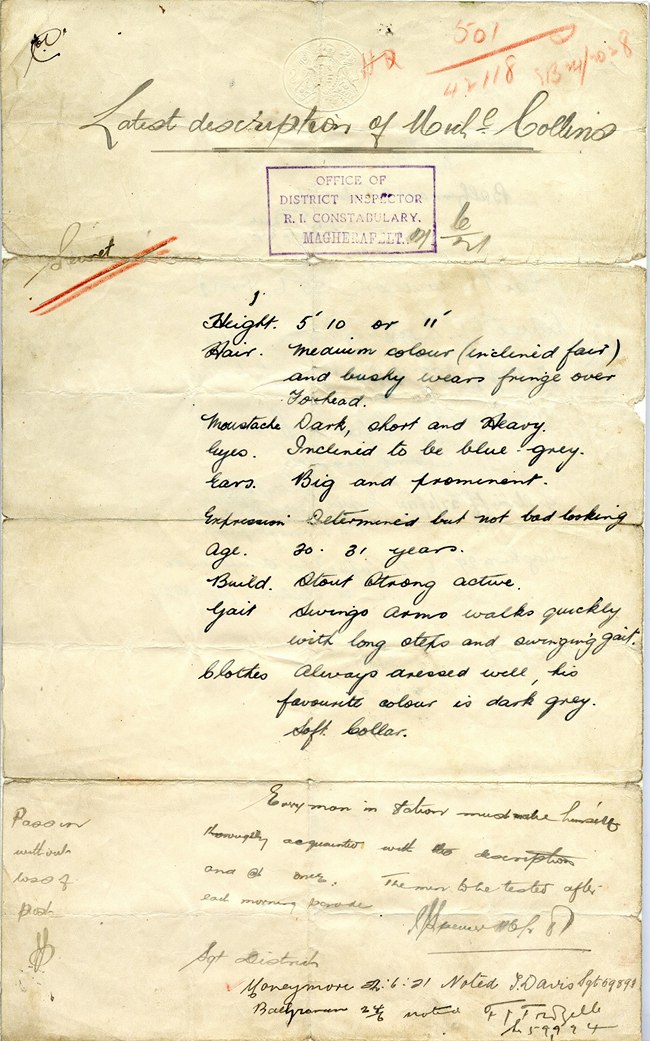 501
HQ
42118
Latest description of Michl. Collins
OFFICE OF
DISTRICT INSPECTOR
R. I. CONSTABULARY.
MAGHERAFELT.
Secret
Height. 5' 10 or 11"
Hair. Medium colour (inclined fair)
and bushy wears fringe over
Forhead.
Moustache Dark, short and Heavy.
Eyes. Inclined to be blue-grey.
Ears. Big and prominent.
Expression Determined but not bad looking
Age. 30. 31 years.
Build. Stout Strong active.
Gait Swings Arms walks quickly
with long steps and swinging gait.
Clothes Always dressed well, his
favourite colour is dark grey.
Soft Collar.
Every man in station must make himself
thoroughly acquainted with this description
and at once. The men to be tested after
each morning parade
Pass on
without
loss of
post
Sgt District
Moneymore 22.6.21 Noted J. Davis Sgt
noted